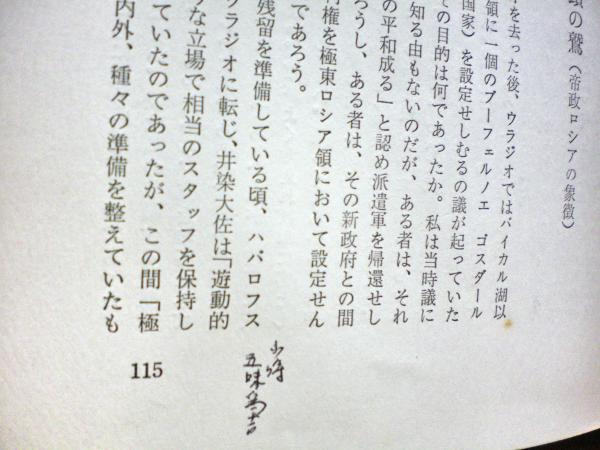 頭の鷲(帝政ロシアの象徴)
を去った後、ウラジオではバイカル湖以
領に一個のブーフェルノエ ゴスダール
国家)を設定せしむるの議が起っていた
の目的は何であったか。私は当時議に
知る由もないのだが、ある者は、それ
の平和成る」と認め派遣軍を帰還せし
ろうし、ある者は、その新政府との間
権を極東ロシア領において設定せん
であろう。
残留を準備している頃、ハバロフス
ウラジオに転じ、井染大佐は「遊動的
な立場で相当のスタッフを保持し
ていたのであったが、この間「極
内外、種々の準備を整えていたも
少将
五味為吉
115